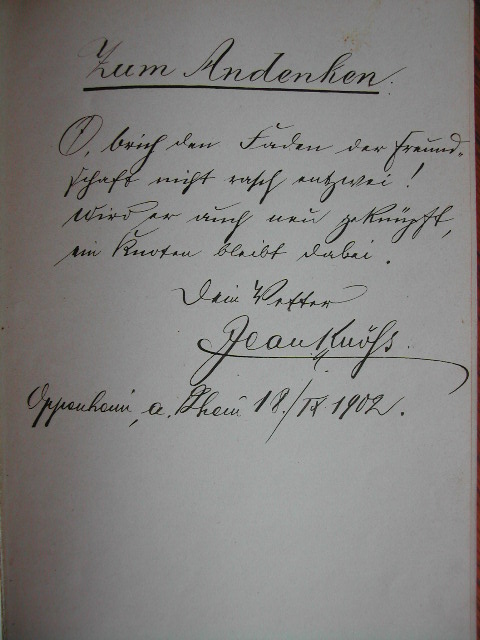 Zum Andenken.
O, brich den Faden der Freund-
schaft nicht rasch entzwei!
Wird er auch neu geknüpft,
ein Knoten bleibt dabei.
Dein Vetter
Jean
Oppenheim, a. Rhein 18./IX. 1902.